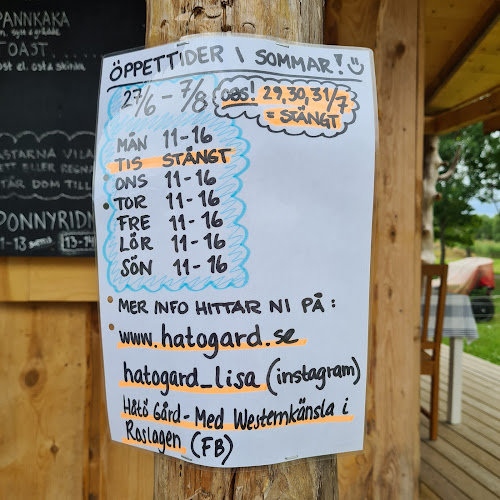 PANNKAKA
TOAST
ÖPPETTIDER I SOMMAR!
27/6 - 7/8
OBS! 29,30,31/7
= STÄNGT
MÅN 11-16
TIS STÄNGT
ONS 11-16
TOR 11-16
FRE 11-16
LÖR 11-16
SÖN 11-16
MER INFO HITTAR NI PÅ:
www.hatogard.se
hatogard_lisa (instagram)
Håtö Gård - Med Westernkänsla i
Roslagen (FB)
VILA
ELLER REGN
DOM TILL
PONNYRIDN
11-13
13-14